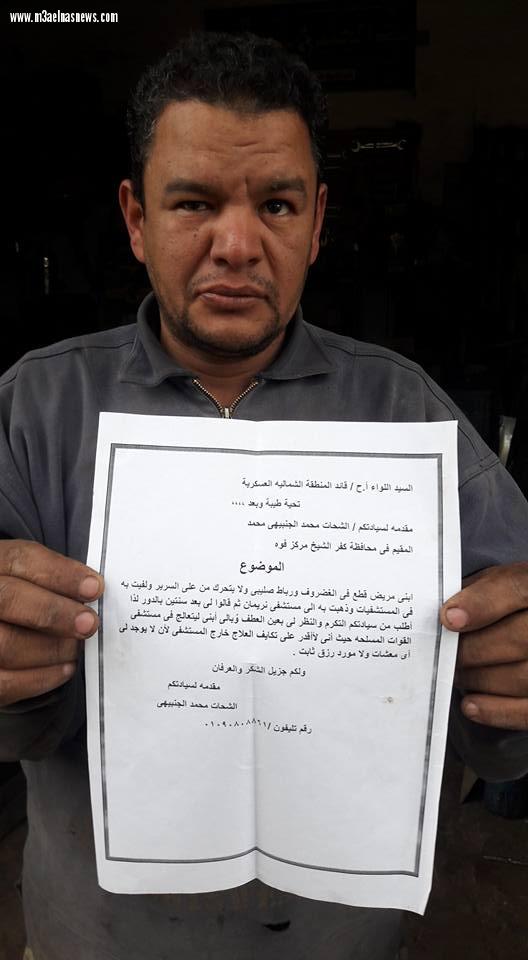 www.m3aelnasnews.com
السيد اللواء أ.ح / قائد المنطقة الشماليه العسكرية
تحية طيبة وبعد ،،،،
مقدمه لسيادتكم / الشحات محمد الجنبيهى محمد
المقيم فى محافظة كفر الشيخ مركز فوه
الموضوع
ابنى مريض قطع فى الغضروف ورباط صليبى ولا يتحرك من على السرير ولفيت به
فى المستشفيات وذهبت به الى مستشفى نريمان ثم قالوا لى بعد سنتين بالدور لذا
أطلب من سيادتكم التكرم والنظر لى بعين العطف وبالى أبنى ليتعالج فى مستشفى
القوات المسلحه حيث أنى لاأقدر على تكايف العلاج خارج المستشفى لأن لا يوجد لى
أى معشات ولا مورد رزق ثابت .
ولكم جزيل الشكر والعرفان
مقدمه لسيادتكم
الشحات محمد الجنبيهى
رقم تليفون /٠١٠٩٠٨٠٨٨٦١